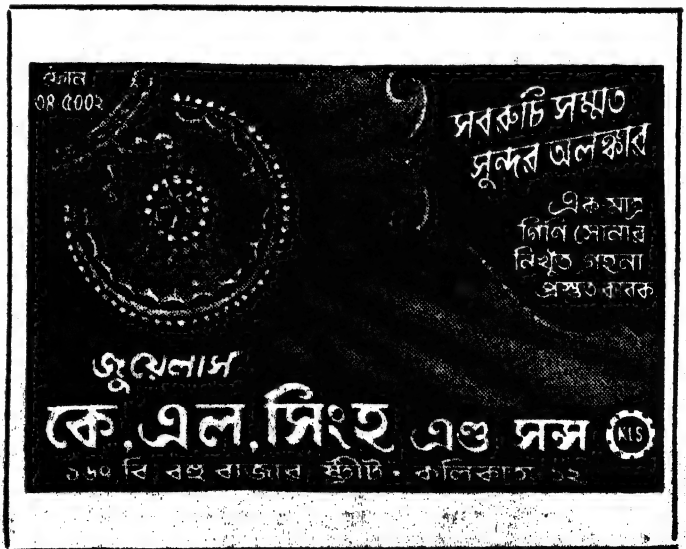 ফোন
৩৪ ৫০০২
সবরুচি সম্মত
সুন্দর অলঙ্কার
একমাত্র
গিণি সোনার
নিখুঁত গহনা
প্রস্তুত কারক
জুয়েলার্স
কে.এল.সিংহ এণ্ড সন্স KLS
বি বহু বাজার ষ্ট্রীট • কলিকাতা ১২